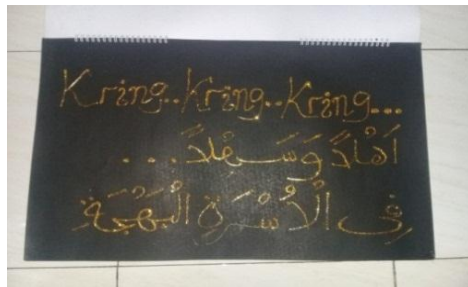 Kring..Kring..Kring...
اَهْلاً وَسَهْلاً...
فِى الْاُسْرَةِ الْبَهْجَةِ